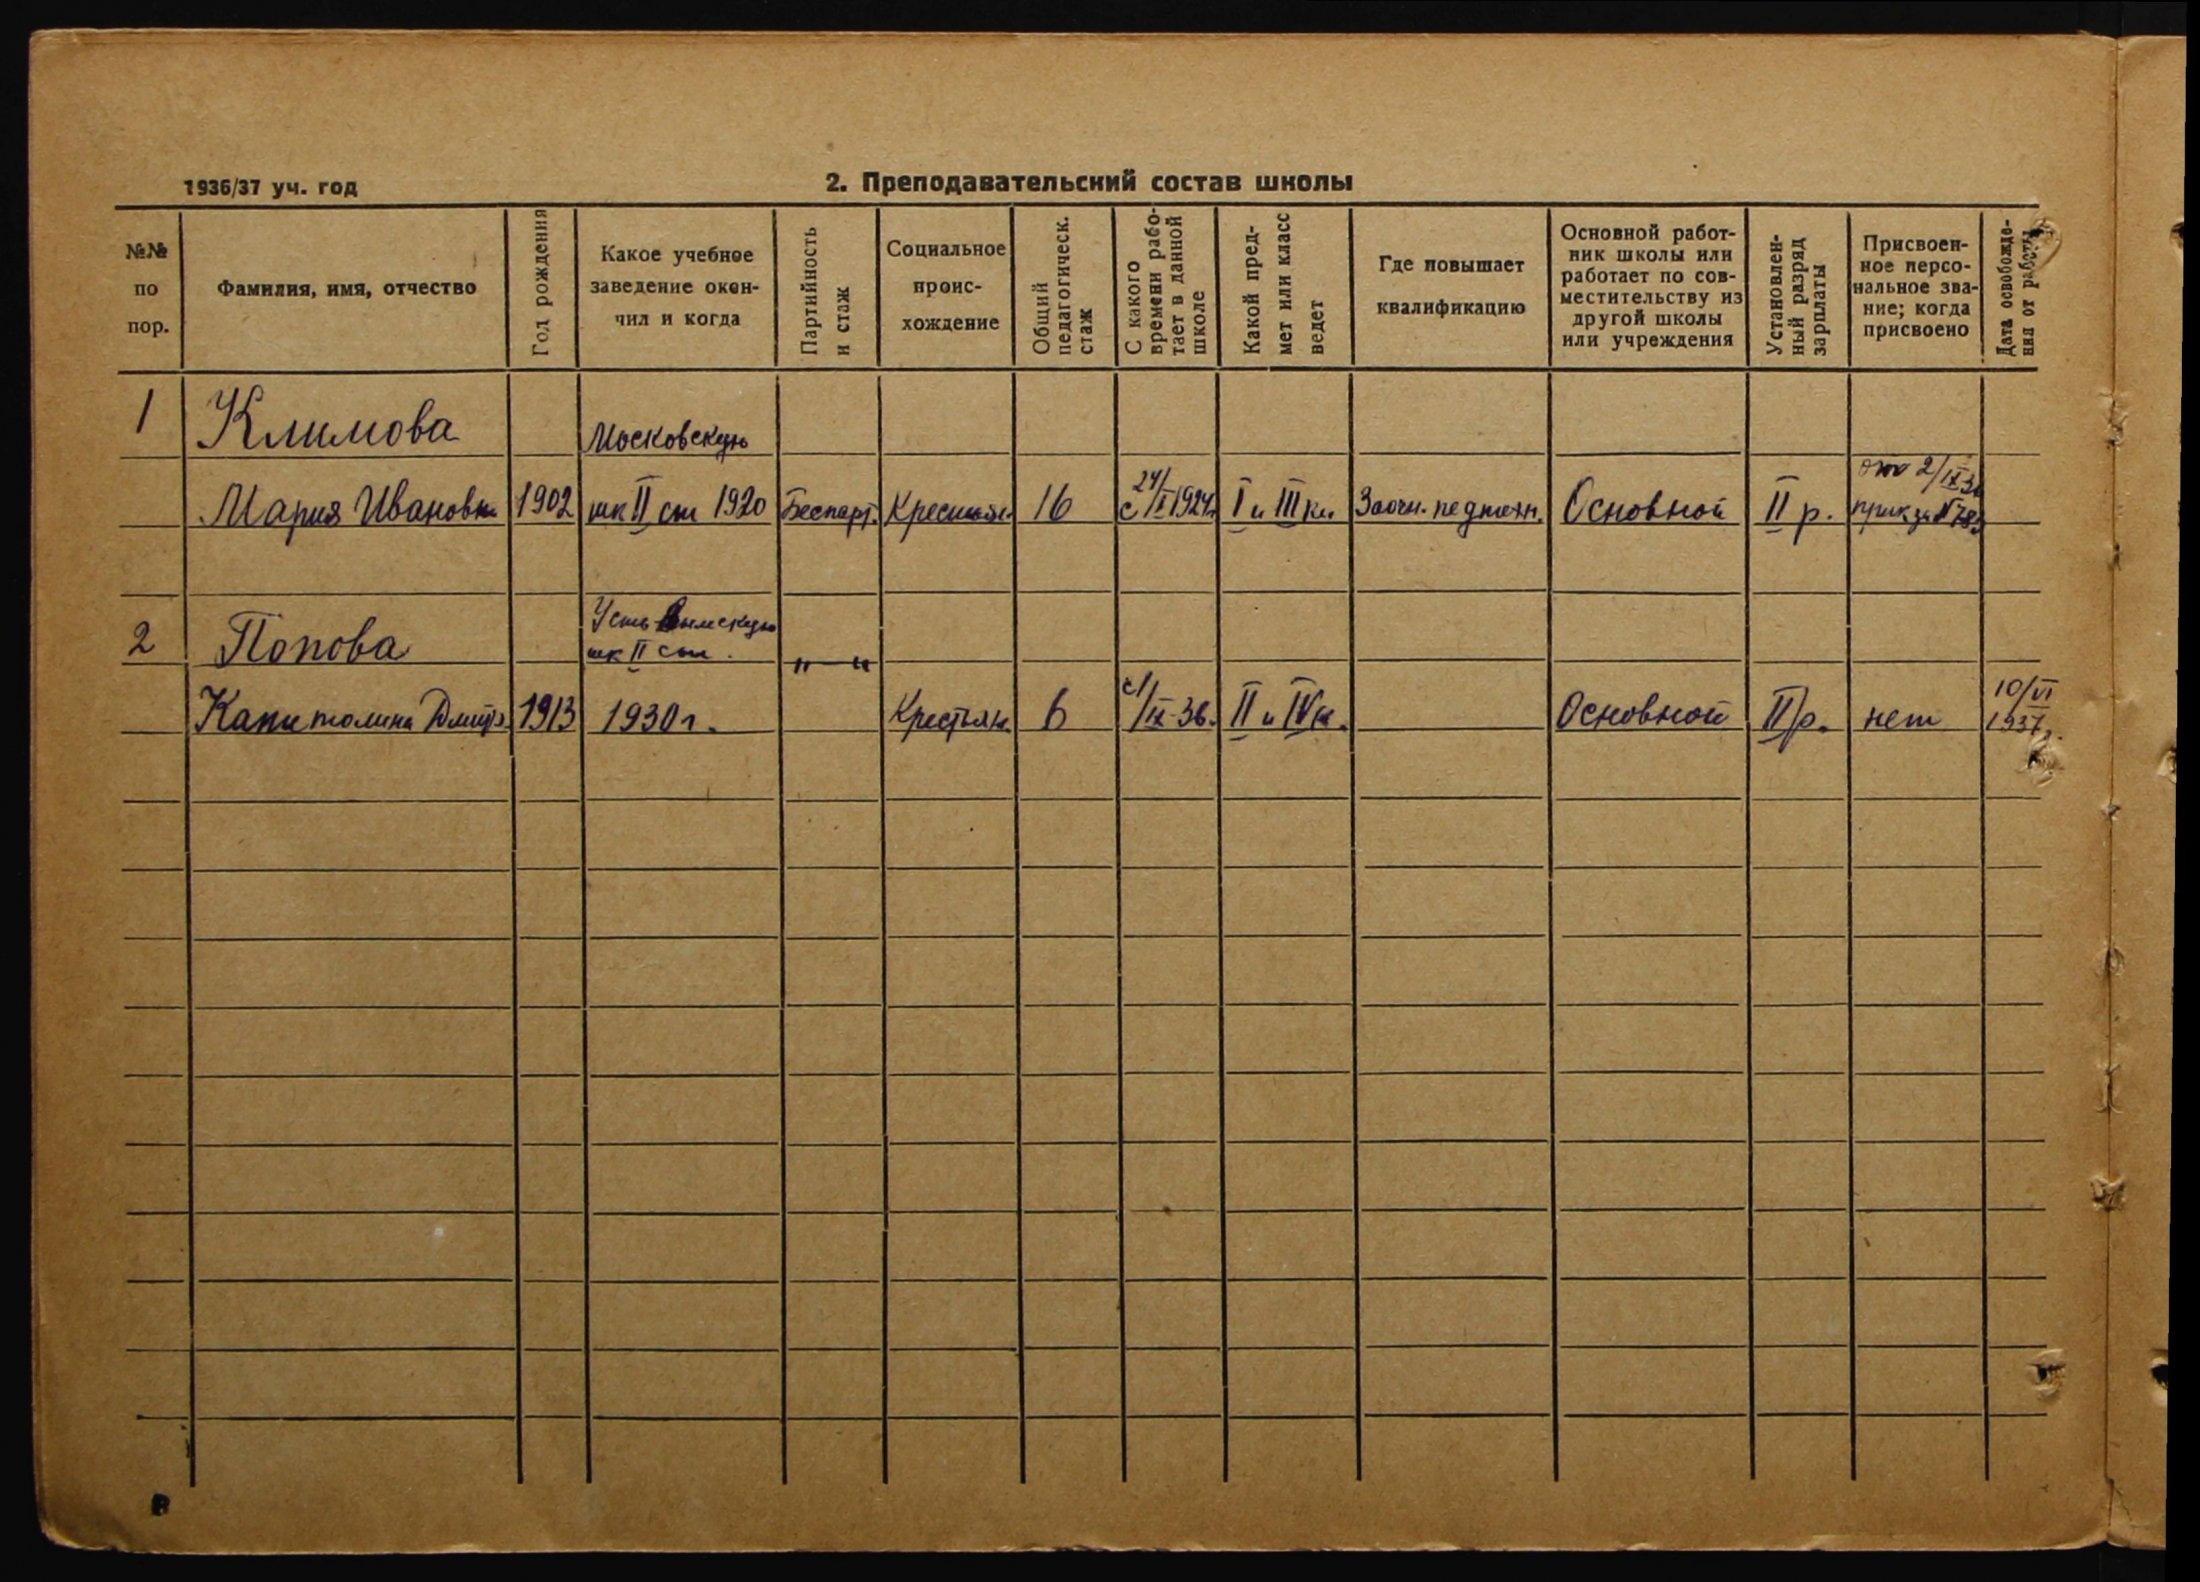 1936/37 уч. год
2. Преподавательский состав школы
№№ по пор.
Фамилия, имя, отчество
Год рождения
Какое учебное заведение окон-
чил и когда
Партийность и стаж
Социальное проис-
хождение
Общий педагогическ. стаж
С какого времени рабо-
тает в данной школе
Какой пред-
мет или класс ведет
Где повышает квалификацию
Основной работ-
ник школы или
работает по сов-
местительству из
другой школы
или учреждения
Установлен-
ный разряд зарплаты
Присвоен-
ное персо-
нальное зва-
ние; когда
присвоено
Дата освобожде-
ния от работы
1 Климова Московскую
от 2/IX 36
Мария Ивановна 1902 шк II ст 1920 Беспарт. Крестьян. 16 с 24/X 1924г. I и III кл Заочн. педтехн. Основной II р. приказ №
2 Попова Усть Вымскую
шк II ст. „ — “
Капитолина Дмитр. 1913 1930 г. Крестьян. 6 с 1/IX-36. II и IV кл. Основной II р. нет 10/VI
1937 г.